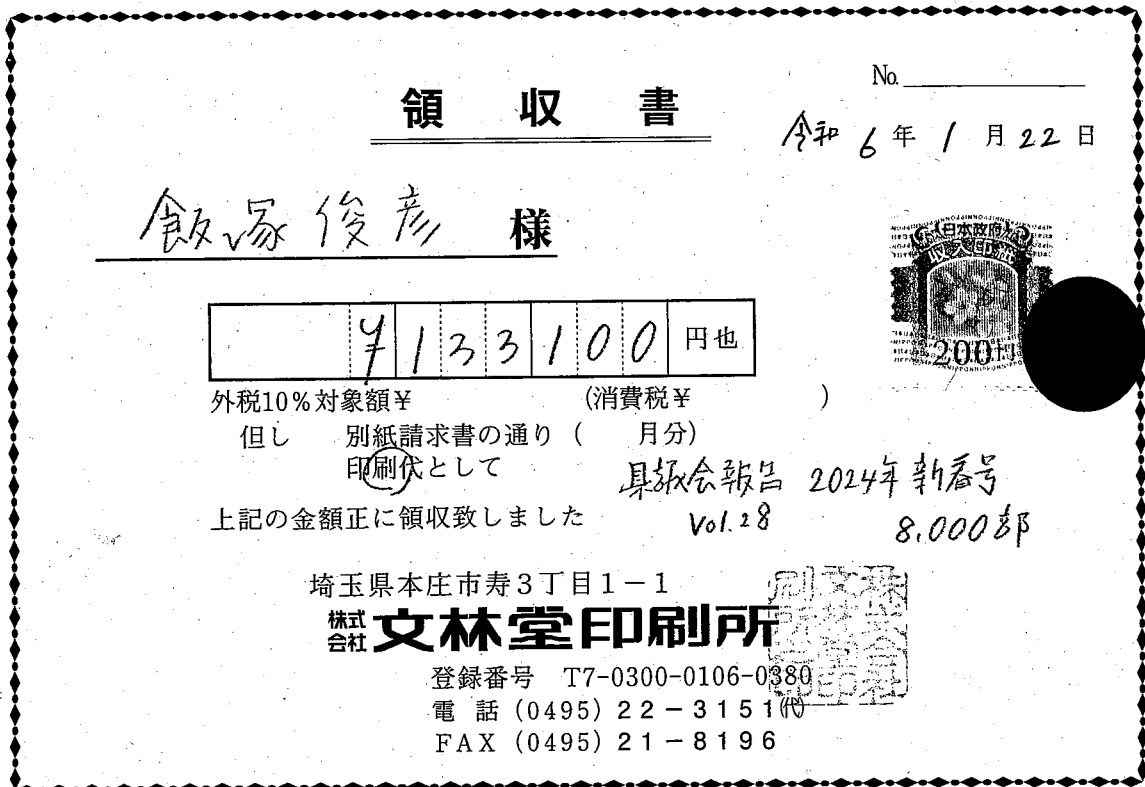 No.
領収書
令和 6年 1月 22日
飯塚俊彦 様
¥133100円也
日本政府
収入印紙
200円
外税10%対象額¥ (消費税¥ )
但し 別紙請求書の通り ( 月分)
印刷代として
県議会報告 2024年 新春号
上記の金額正に領収致しました
Vol.28 8.000部
埼玉県本庄市寿3丁目1-1
株式会社 文林堂印刷所
登録番号 T7-0300-0106-0380
電話 (0495) 22-3151(代)
FAX (0495) 21-8196